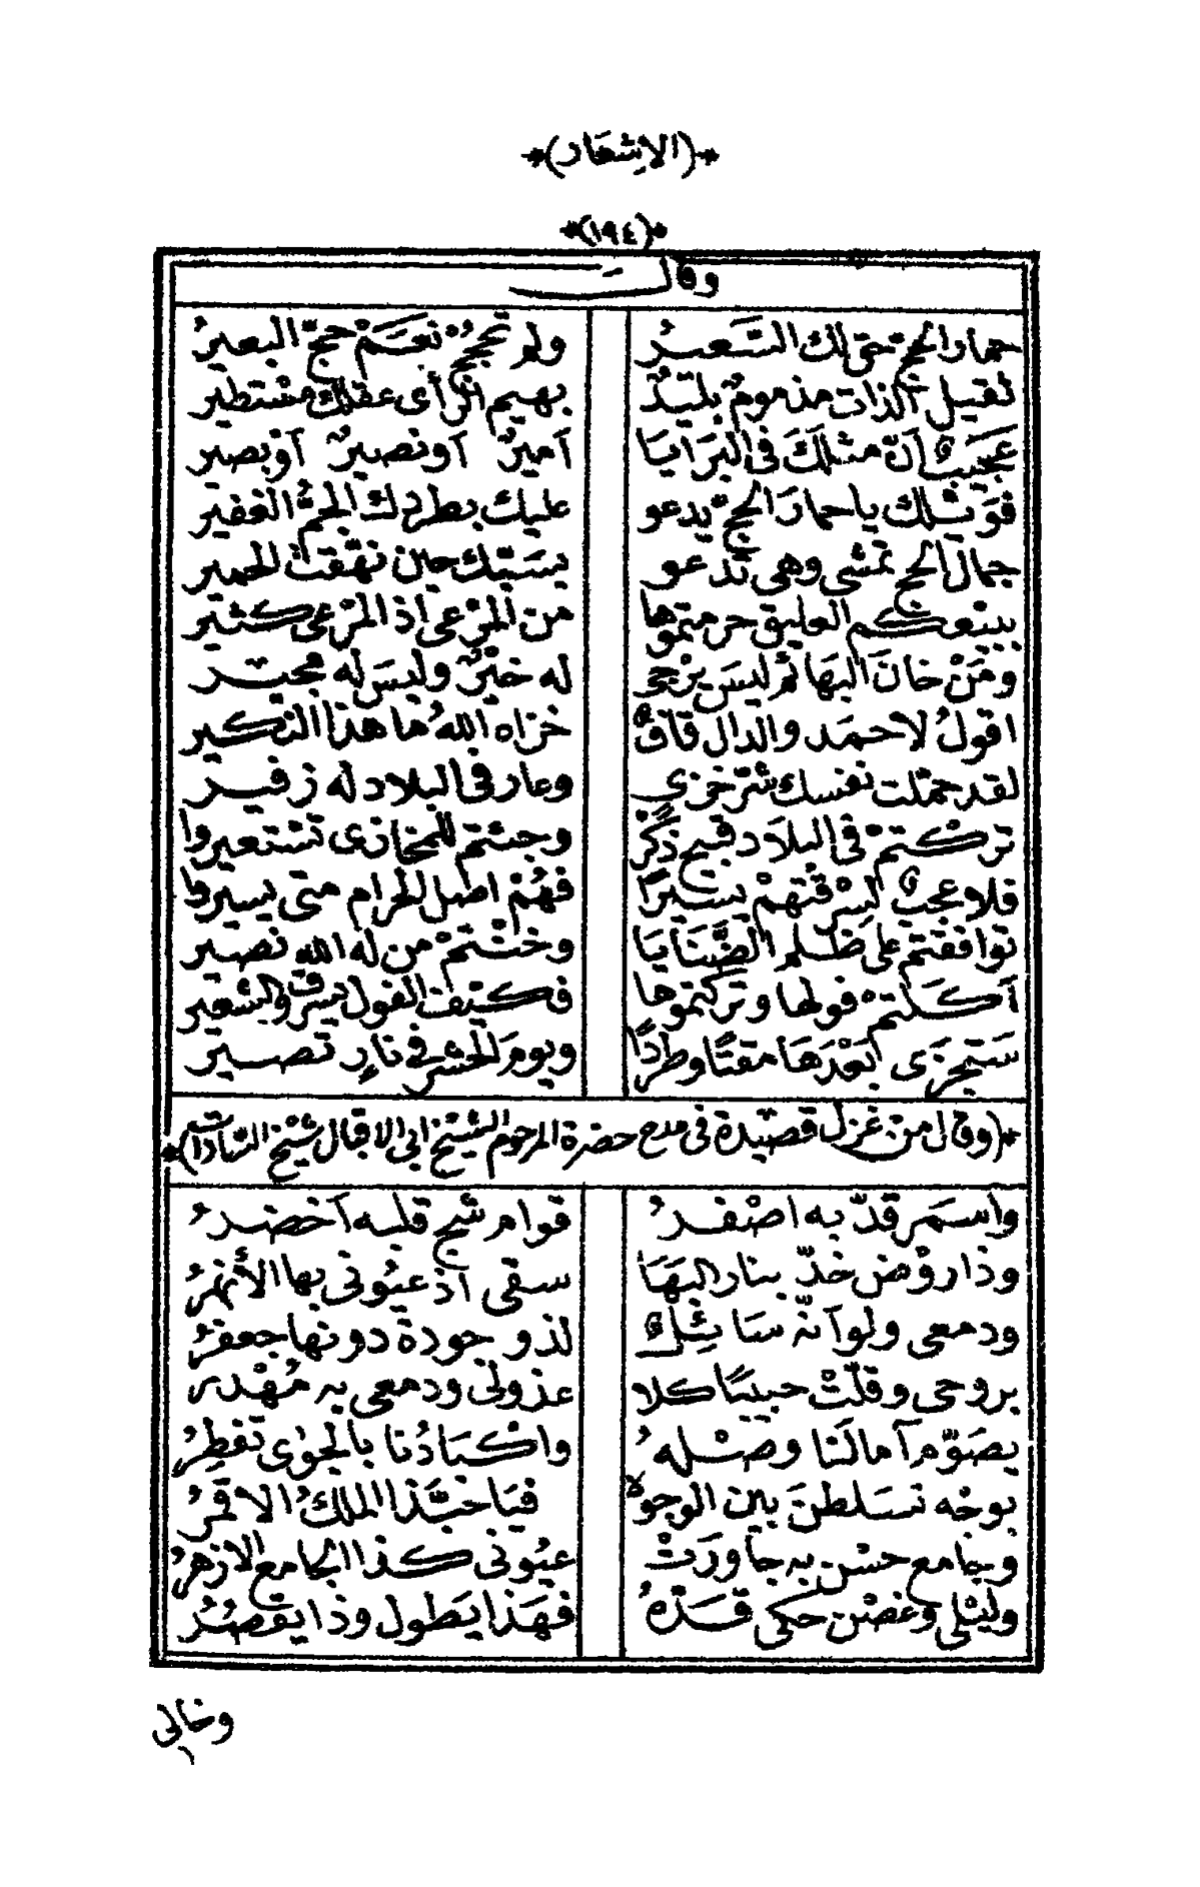 *(الاشعار)*
*(١٩٤)*
وقال
حمار الحج حتى لك السعير ولم تحجج نعم حج البعير
ثقيل الذات مذموم بليد بهيم الرأى عقلك مستطير
عجيب أن مثلك فى البرايا أمير أو نصير أو بصير
فويلك يا حمار الحج يدعو عليك بطردك الجم الغفير
جمال الحج تمشى وهى تدعو يسبك حين نهقت الحمير
ببيعكم العليق حرمتموها من المرعى اذ المرعى كثير
ومن خان البهائم ليس يرجى له خير وليس له مجير
اقول لاحمد والدال قاف خزاه الله ما هذا النكير
لقد حملت نفسك شر خزى وعار فى البلاد له زفير
تركتم فى البلاد قبيح ذكر وجئتم للمخازى تستعيروا
فلا عجب لسرقتهم يسيرا فهم اصل الحرام متى يسيروا
توافقتم على ظلم الضنايا وخنتم من له الله نصير
أكلتم فولها وتركتموها فكيف الفول يسرق والشعير
ستجزى بعدها مقتا وطردا ويوم الحشر فى نار تصير
*(وقال من غزل قصيدة فى مدح حضرة المرحوم الشيخ ابى الاقبال شيخ السادات)*
واسمر قد به اصفر قوام شج قلبه أخضر
وذا روض خد بنار البها سقى اذ عيونى بها الأنهر
ودمعى ولو أنه سائل لذو جودة دونها جعفر
بروحى وقلت حبيبا كلا عذولى ودمعى به مهدر
يصوم آمالنا وصله واكبادنا بالجوى تفطر
بوجه تسلطن بين الوجوه فيا حبذا الملك الاقمر
وجامع حسن به جاورت عيونى كذا الجامع الازهر
وليلى وغصن حكى قده فهذا يطول وذا يقصر
وخالى